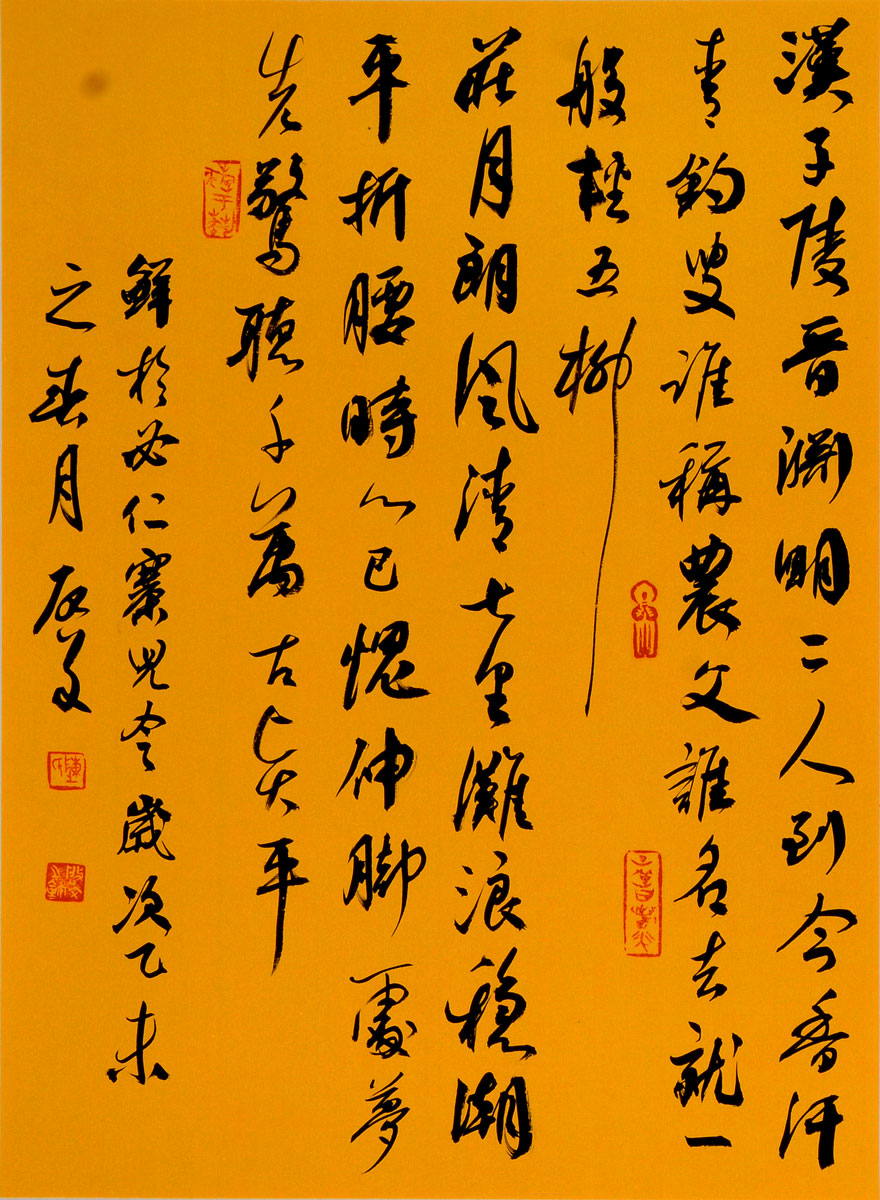 漢子陵晋淵明二人到今香汗
青釣叟誰稱農父誰名去就一
般輕五柳
莊月朗風清七里灘浪穩潮
平折腰時心已愧伸脚處夢
先驚聽千萬古聖太平
鮮於必仁寨兒令歲次乙未
之春月